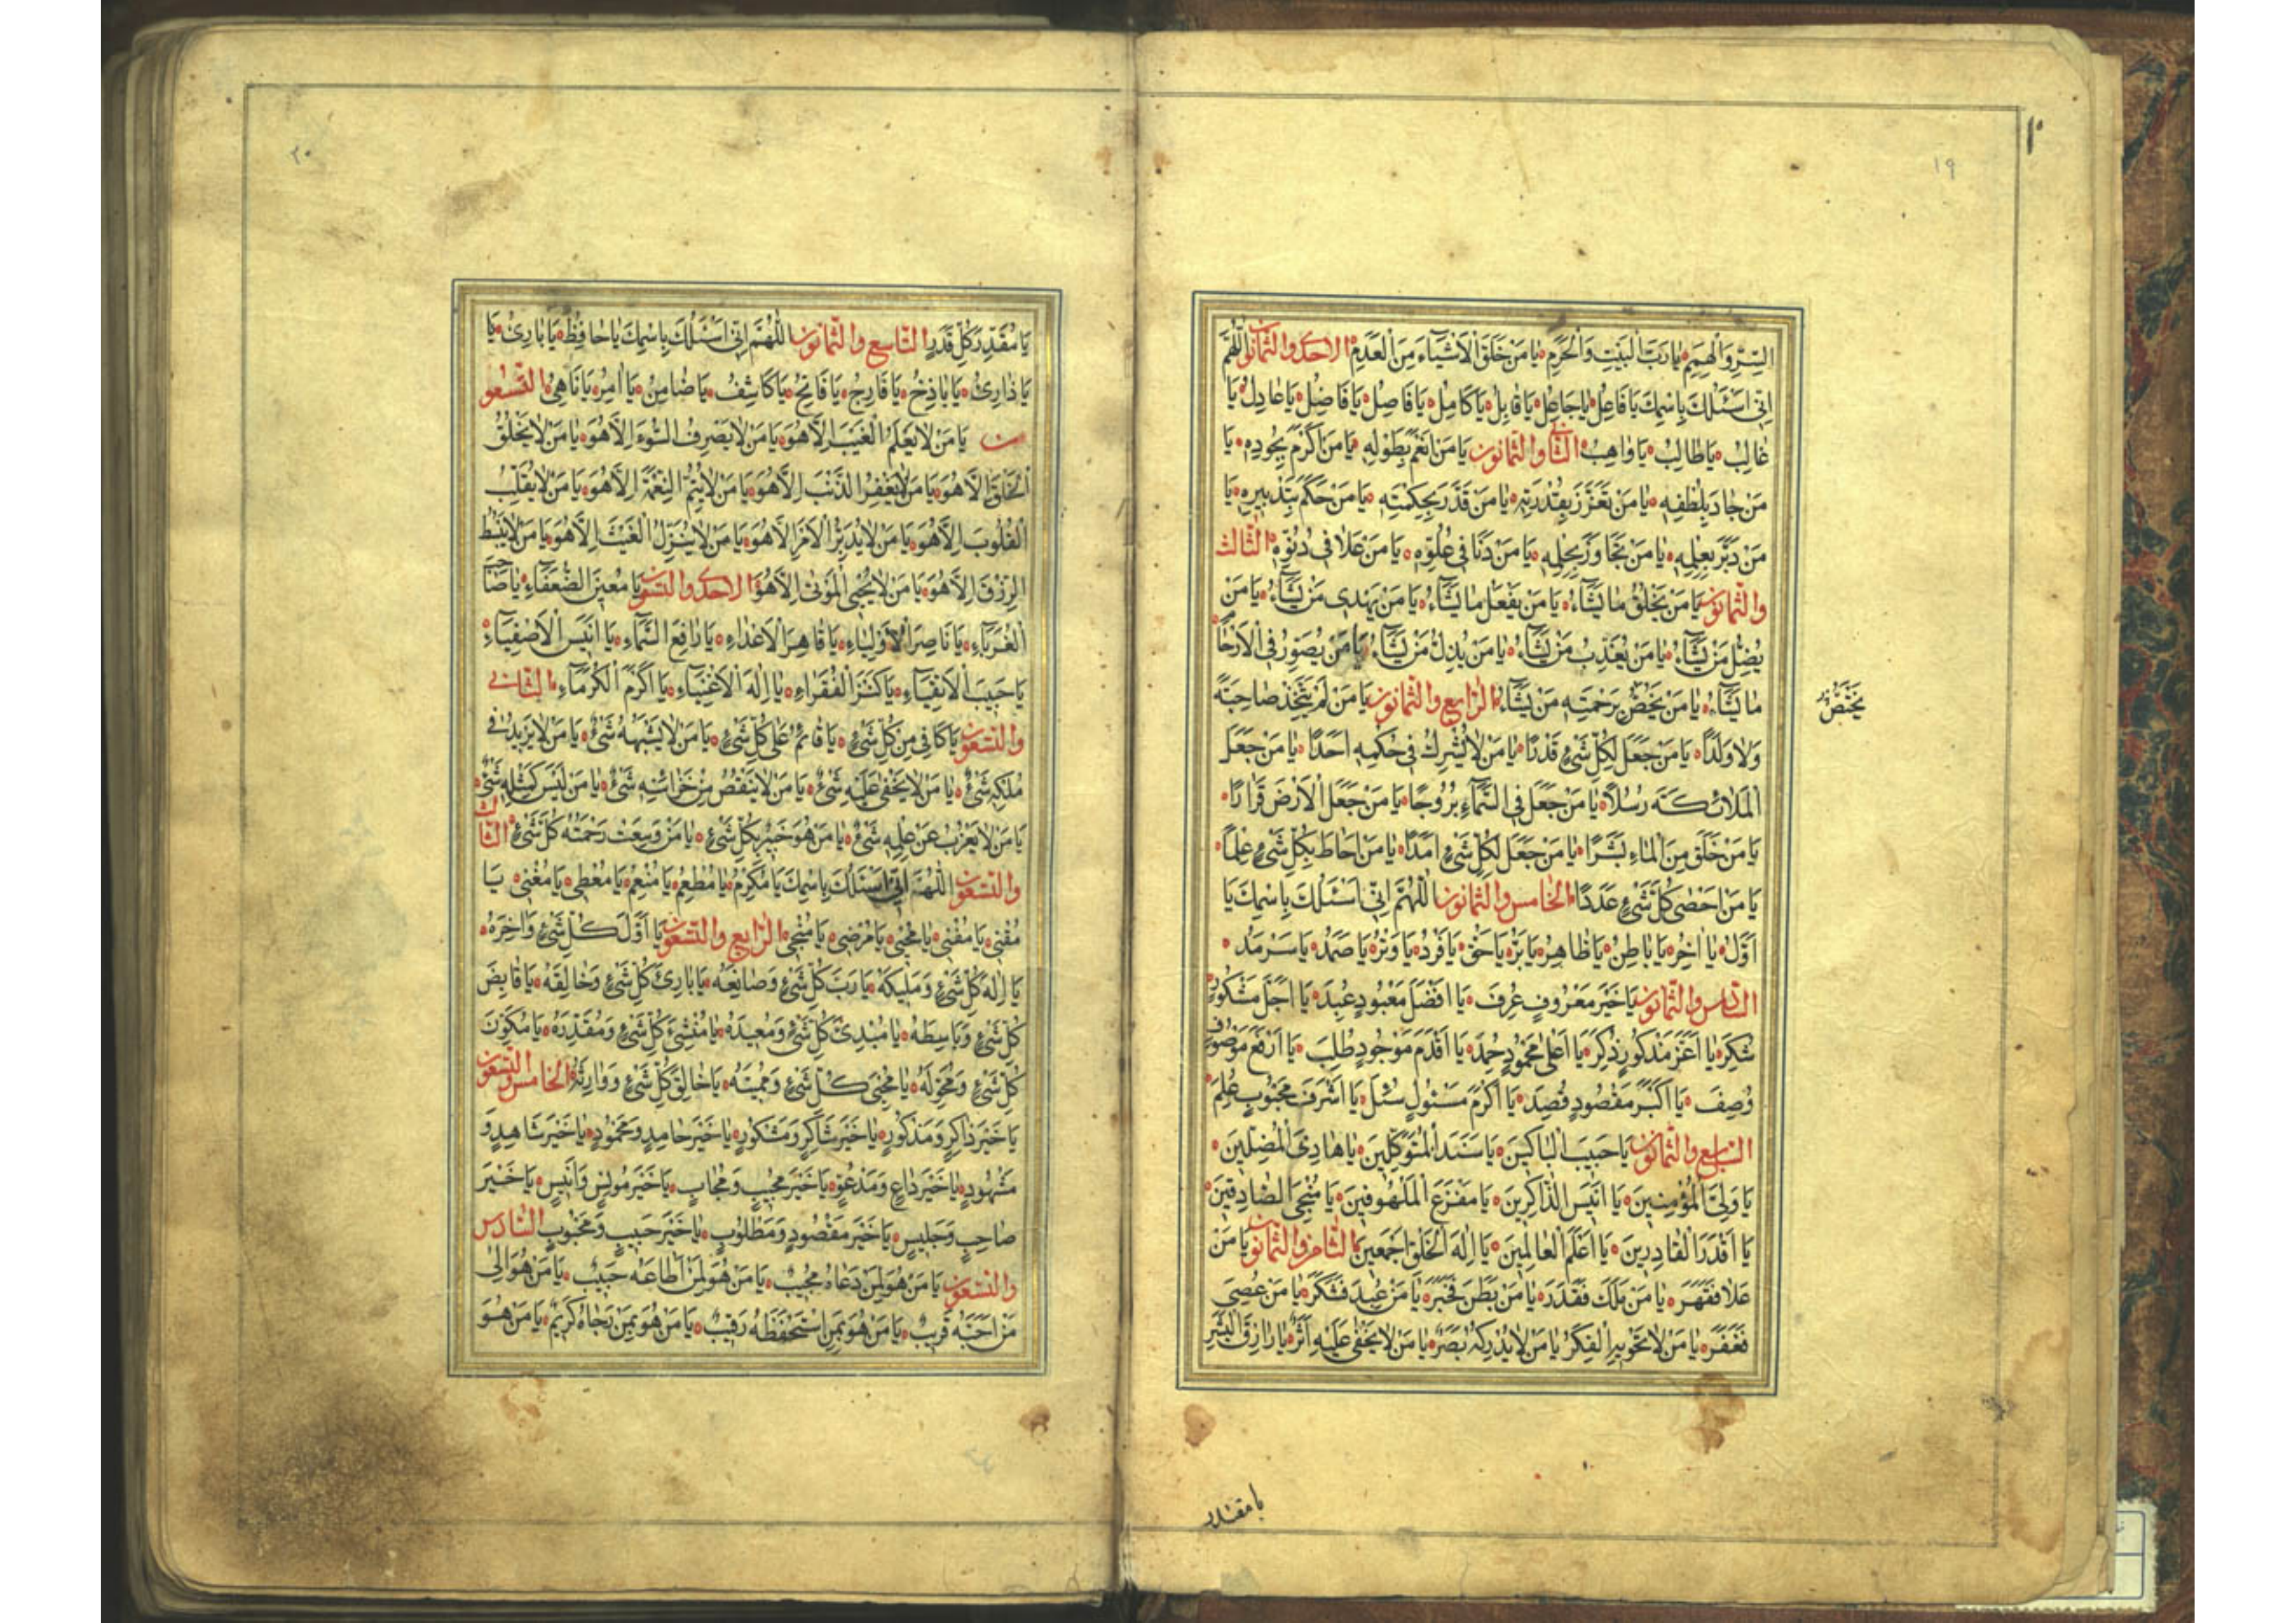 ١٩
السِّرِّ وَالْهِمَمِ يَا رَبَّ الْبَيْتِ وَالْحَرَمِ يَا مَنْ خَلَقَ الْأَشْيَاءَ مِنَ الْعَدَمِ الاحد والثمانون اللّٰهُمَّ
اِنّي اَسْئَلُكَ بِاسْمِكَ يَا فَاعِلُ يَا جَاعِلُ يَا قَابِلُ يَا كَامِلُ يَا فَاصِلُ يَا فَاضِلُ يَا عَادِلُ يَا
غَالِبُ يَا طَالِبُ يَا وَاهِبُ الثاني والثمانون يَا مَنْ اَنْعَمَ بِطَوْلِهِ يَا مَنْ اَكْرَمَ بِجُودِهِ يَا
مَنْ جَادَ بِلُطْفِهِ يَا مَنْ تَعَزَّزَ بِقُدْرَتِهِ يَا مَنْ قَدَّرَ بِحِكْمَتِهِ يَا مَنْ حَكَمَ بِتَدْبِيرِهِ يَا
مَنْ دَبَّرَ بِعِلْمِهِ يَا مَنْ تَجَاوَزَ بِحِلْمِهِ يَا مَنْ دَنَا فِي عُلُوِّهِ يَا مَنْ عَلَا فِي دُنُوِّهِ الثالث
والثمانون يَا مَنْ يَخْلُقُ مَا يَشَاءُ يَا مَنْ يَفْعَلُ مَا يَشَاءُ يَا مَنْ يَهْدِي مَنْ يَشَاءُ يَا مَنْ
يُضِلُّ مَنْ يَشَاءُ يَا مَنْ يُعَذِّبُ مَنْ يَشَاءُ يَا مَنْ يُذِلُّ مَنْ يَشَاءُ يَا مَنْ يُصَوِّرُ فِي الْاَرْحَامِ
مَا يَشَاءُ يَا مَنْ يَخْتَصُّ بِرَحْمَتِهِ مَنْ يَشَاءُ الرابع والثمانون يَا مَنْ لَمْ يَتَّخِذْ صَاحِبَةً
يَخْتَصُّ
وَلَا وَلَدًا يَا مَنْ جَعَلَ لِكُلِّ شَيْءٍ قَدْرًا يَا مَنْ لَا يُشْرِكُ فِي حُكْمِهِ اَحَدًا يَا مَنْ جَعَلَ
الْمَلَائِكَةَ رُسُلًا يَا مَنْ جَعَلَ فِي السَّمَاءِ بُرُوجًا يَا مَنْ جَعَلَ الْأَرْضَ قَرَارًا
يَا مَنْ خَلَقَ مِنَ الْمَاءِ بَشَرًا يَا مَنْ جَعَلَ لِكُلِّ شَيْءٍ اَمَدًا يَا مَنْ اَحَاطَ بِكُلِّ شَيْءٍ عِلْمًا
يَا مَنْ اَحْصٰى كُلَّ شَيْءٍ عَدَدًا الخامس والثمانون اللّٰهُمَّ اِنّي اَسْئَلُكَ بِاسْمِكَ يَا
اَوَّلُ يَا اٰخِرُ يَا بَاطِنُ يَا ظَاهِرُ يَا بَرُّ يَا حَقُّ يَا فَرْدُ يَا وِتْرُ يَا صَمَدُ يَا سَرْمَدُ
السادس والثمانون يَا خَيْرَ مَعْرُوفٍ عُرِفَ يَا اَفْضَلَ مَعْبُودٍ عُبِدَ يَا اَجَلَّ مَشْكُورٍ
شُكِرَ يَا اَعَزَّ مَذْكُورٍ ذُكِرَ يَا اَعْلٰى مَحْمُودٍ حُمِدَ يَا اَقْدَمَ مَوْجُودٍ طُلِبَ يَا اَرْفَعَ مَوْصُوفٍ
وُصِفَ يَا اَكْبَرَ مَقْصُودٍ قُصِدَ يَا اَكْرَمَ مَسْئُولٍ سُئِلَ يَا اَشْرَفَ مَحْبُوبٍ عُلِمَ
السابع والثمانون يَا حَبِيبَ الْبَاكِينَ يَا سَنَدَ الْمُتَوَكِّلِينَ يَا هَادِيَ الْمُضِلِّينَ
يَا وَلِيَّ الْمُؤْمِنِينَ يَا اَنِيسَ الذَّاكِرِينَ يَا مَفْزَعَ الْمَلْهُوفِينَ يَا مُنْجِيَ الصَّادِقِينَ
يَا اَقْدَرَ الْقَادِرِينَ يَا اَعْلَمَ الْعَالِمِينَ يَا اِلٰهَ الْخَلْقِ اَجْمَعِينَ الثامن والثمانون يَا مَنْ
عَلَا فَقَهَرَ يَا مَنْ مَلَكَ فَقَدَرَ يَا مَنْ بَطَنَ فَخَبَرَ يَا مَنْ عُبِدَ فَشَكَرَ يَا مَنْ عُصِيَ
فَغَفَرَ يَا مَنْ لَا تَحْوِيهِ الْفِكَرُ يَا مَنْ لَا يُدْرِكُهُ بَصَرٌ يَا مَنْ لَا يَخْفٰى عَلَيْهِ اَثَرٌ يَا رَازِقَ الْبَشَرِ
يا مقدر
٢٠
يَا مُقَدِّرَ كُلِّ قَدَرٍ التاسع والثمانون اللّٰهُمَّ اِنّي اَسْئَلُكَ بِاسْمِكَ يَا حَافِظُ يَا بَارِئُ يَا
يَا ذَارِئُ يَا بَاذِخُ يَا فَارِجُ يَا فَاتِحُ يَا كَاشِفُ يَا ضَامِنُ يَا اٰمِرُ يَا نَاهِي التسعو
ن يَا مَنْ لَا يَعْلَمُ الْغَيْبَ اِلَّا هُوَ يَا مَنْ لَا يَصْرِفُ السُّوءَ اِلَّا هُوَ يَا مَنْ لَا يَخْلُقُ
الْخَلْقَ اِلَّا هُوَ يَا مَنْ لَا يَغْفِرُ الذَّنْبَ اِلَّا هُوَ يَا مَنْ لَا يُتِمُّ النِّعْمَةَ اِلَّا هُوَ يَا مَنْ لَا يُقَلِّبُ
الْقُلُوبَ اِلَّا هُوَ يَا مَنْ لَا يُدَبِّرُ الْاَمْرَ اِلَّا هُوَ يَا مَنْ لَا يُنَزِّلُ الْغَيْثَ اِلَّا هُوَ يَا مَنْ لَا يَبْسُطُ
الرِّزْقَ اِلَّا هُوَ يَا مَنْ لَا يُحْيِي الْمَوْتٰى اِلَّا هُوَ الاحد والتسعون يَا مُعِينَ الضُّعَفَاءِ يَا صَاحِبَ
الْغُرَبَاءِ يَا نَاصِرَ الْاَوْلِيَاءِ يَا قَاهِرَ الْاَعْدَاءِ يَا رَافِعَ السَّمَاءِ يَا اَنِيسَ الْاَصْفِيَاءِ
يَا حَبِيبَ الْاَتْقِيَاءِ يَا كَنْزَ الْفُقَرَاءِ يَا اِلٰهَ الْاَغْنِيَاءِ يَا اَكْرَمَ الْكُرَمَاءِ الثاني
والتسعون يَا كَافِيَ مِنْ كُلِّ شَيْءٍ يَا قَائِمُ عَلٰى كُلِّ شَيْءٍ يَا مَنْ لَا يُشْبِهُهُ شَيْءٌ يَا مَنْ لَا يَزِيدُ فِي
مُلْكِهِ شَيْءٌ يَا مَنْ لَا يَخْفٰى عَلَيْهِ شَيْءٌ يَا مَنْ لَا يَنْقُصُ مِنْ خَزَائِنِهِ شَيْءٌ يَا مَنْ لَيْسَ كَمِثْلِهِ شَيْءٌ
يَا مَنْ لَا يَعْزُبُ عَنْ عِلْمِهِ شَيْءٌ يَا مَنْ هُوَ خَبِيرٌ بِكُلِّ شَيْءٍ يَا مَنْ وَسِعَتْ رَحْمَتُهُ كُلَّ شَيْءٍ الثالث
والتسعون اللّٰهُمَّ اِنّي اَسْئَلُكَ بِاسْمِكَ يَا مُكْرِمُ يَا مُطْعِمُ يَا مُنْعِمُ يَا مُعْطِي يَا مُغْنِي يَا
مُقْنِي يَا مُفْنِي يَا مُحْيِي يَا مُرْضِي يَا مُنْجِي الرابع والتسعون يَا اَوَّلَ كُلِّ شَيْءٍ وَاٰخِرَهُ
يَا اِلٰهَ كُلِّ شَيْءٍ وَمَلِيكَهُ يَا رَبَّ كُلِّ شَيْءٍ وَصَانِعَهُ يَا بَارِئَ كُلِّ شَيْءٍ وَخَالِقَهُ يَا قَابِضَ
كُلِّ شَيْءٍ وَبَاسِطَهُ يَا مُبْدِئَ كُلِّ شَيْءٍ وَمُعِيدَهُ يَا مُنْشِئَ كُلِّ شَيْءٍ وَمُقَدِّرَهُ يَا مُكَوِّنَ
كُلِّ شَيْءٍ وَمُحَوِّلَهُ يَا مُحْيِيَ كُلِّ شَيْءٍ وَمُمِيتَهُ يَا خَالِقَ كُلِّ شَيْءٍ وَوَارِثَهُ الخامس والتسعون
يَا خَيْرَ ذَاكِرٍ وَمَذْكُورٍ يَا خَيْرَ شَاكِرٍ وَمَشْكُورٍ يَا خَيْرَ حَامِدٍ وَمَحْمُودٍ يَا خَيْرَ شَاهِدٍ وَ
مَشْهُودٍ يَا خَيْرَ دَاعٍ وَمَدْعُوٍّ يَا خَيْرَ مُجِيبٍ وَمُجَابٍ يَا خَيْرَ مُونِسٍ وَاَنِيسٍ يَا خَيْرَ
صَاحِبٍ وَجَلِيسٍ يَا خَيْرَ مَقْصُودٍ وَمَطْلُوبٍ يَا خَيْرَ حَبِيبٍ وَمَحْبُوبٍ السادس
والتسعون يَا مَنْ هُوَ لِمَنْ دَعَاهُ مُجِيبٌ يَا مَنْ هُوَ لِمَنْ اَطَاعَهُ حَبِيبٌ يَا مَنْ هُوَ اِلٰى
مَنْ اَحَبَّهُ قَرِيبٌ يَا مَنْ هُوَ بِمَنِ اسْتَحْفَظَهُ رَقِيبٌ يَا مَنْ هُوَ بِمَنْ رَجَاهُ كَرِيمٌ يَا مَنْ هُوَ